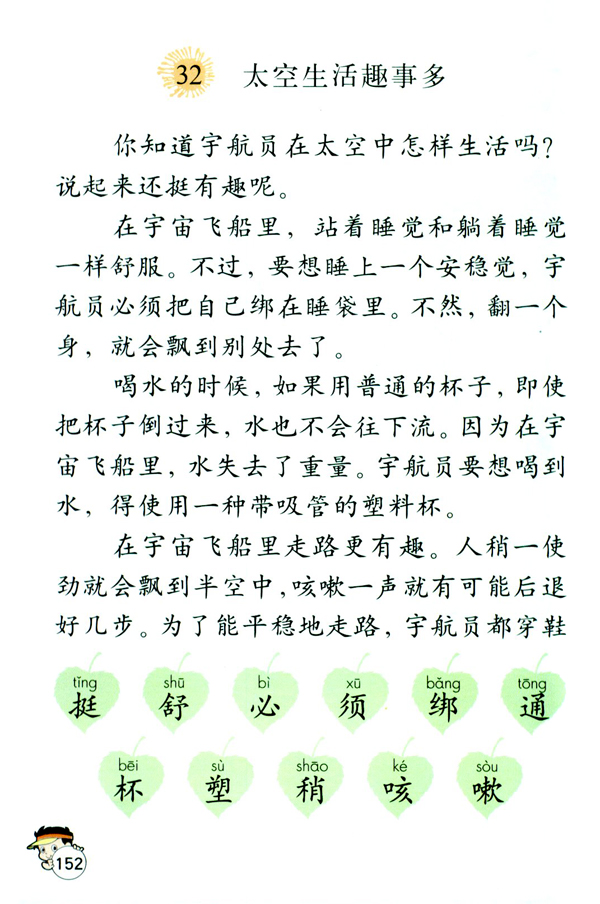 32 太空生活趣事多
你知道宇航员在太空中怎样生活吗？
说起来还挺有趣呢。
在宇宙飞船里，站着睡觉和躺着睡觉
一样舒服。不过，要想睡上一个安稳觉，宇
航员必须把自己绑在睡袋里。不然，翻一个
身，就会飘到别处去了。
喝水的时候，如果用普通的杯子，即使
把杯子倒过来，水也不会往下流。因为在宇
宙飞船里，水失去了重量。宇航员要想喝到
水，得使用一种带吸管的塑料杯。
在宇宙飞船里走路更有趣。人稍一使
劲就会飘到半空中，咳嗽一声就有可能后退
好几步。为了能平稳地走路，宇航员都穿鞋
tǐng shū bì xū bǎng tōng
挺 舒 必 须 绑 通
bēi sù shāo ké sòu
杯 塑 稍 咳 嗽
152